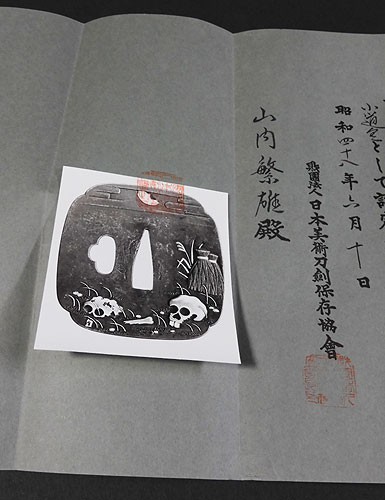 小道具として認定
昭和四十八年六月十日
財團法人日本美術刀劍保存協會
山内繁雄殿